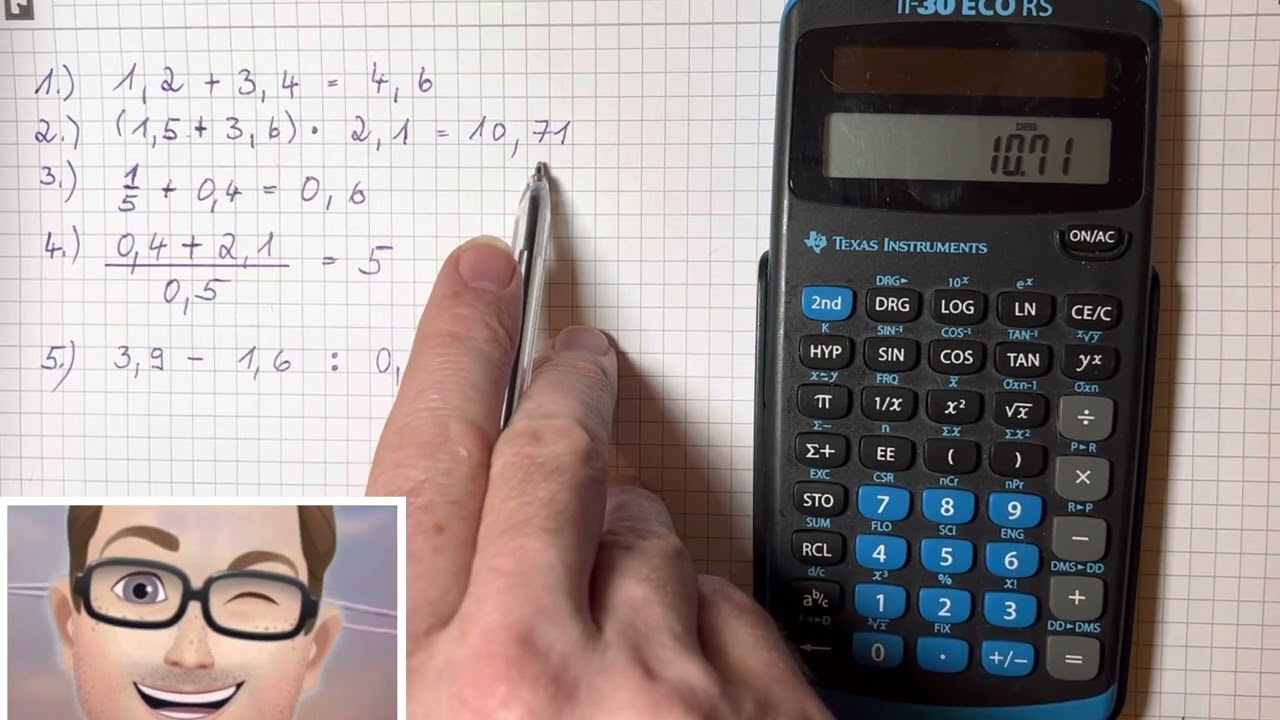 TI-30 ECO RS
1.) 1,2 + 3,4 = 4,6
2.) (1,5 + 3,6) · 2,1 = 10,71
3.) 1/5 + 0,4 = 0,6
4.) 0,4 + 2,1 / 0,5 = 5
5.) 3,9 - 1,6 : 0,
DEG
10.71
TEXAS INSTRUMENTS
ON/AC
DRG► 10ˣ eˣ
2nd DRG LOG LN CE/C
K SIN⁻¹ COS⁻¹ TAN⁻¹ ˣ√y
HYP SIN COS TAN yˣ
x⇄y FRQ x̄ σxn-1 σxn
π 1/x x² √x ÷
Σ− n Σx Σx² P►R
Σ+ EE ( ) ×
EXC CSR nCr nPr R►P
STO 7 8 9 −
SUM FLO SCI ENG DMS►DD
RCL 4 5 6 +
d/c x³ % x! DD►DMS
aᵇ/c 1 2 3 =
F↔D ³√x FIX
← 0 . +/−